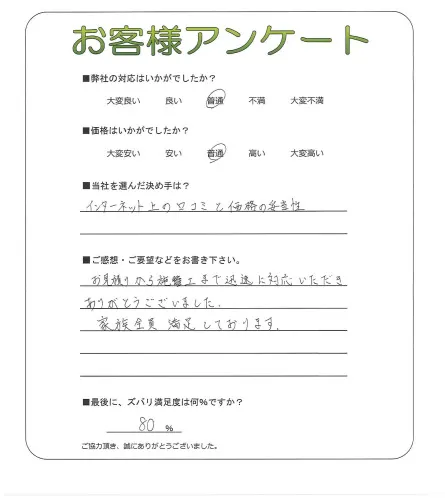 お客様アンケート
■弊社の対応はいかがでしたか？
大変良い 良い 普通 不満 大変不満
■価格はいかがでしたか？
大変安い 安い 普通 高い 大変高い
■当社を選んだ決め手は？
インターネット上の口コミと価格の妥当性
■ご感想・ご要望などをお書き下さい。
お見積りから施工まで迅速に対応いただき
ありがとうございました.
家族全員 満足しております.
■最後に、ズバリ満足度は何%ですか？
80 %
ご協力頂き、誠にありがとうございました。